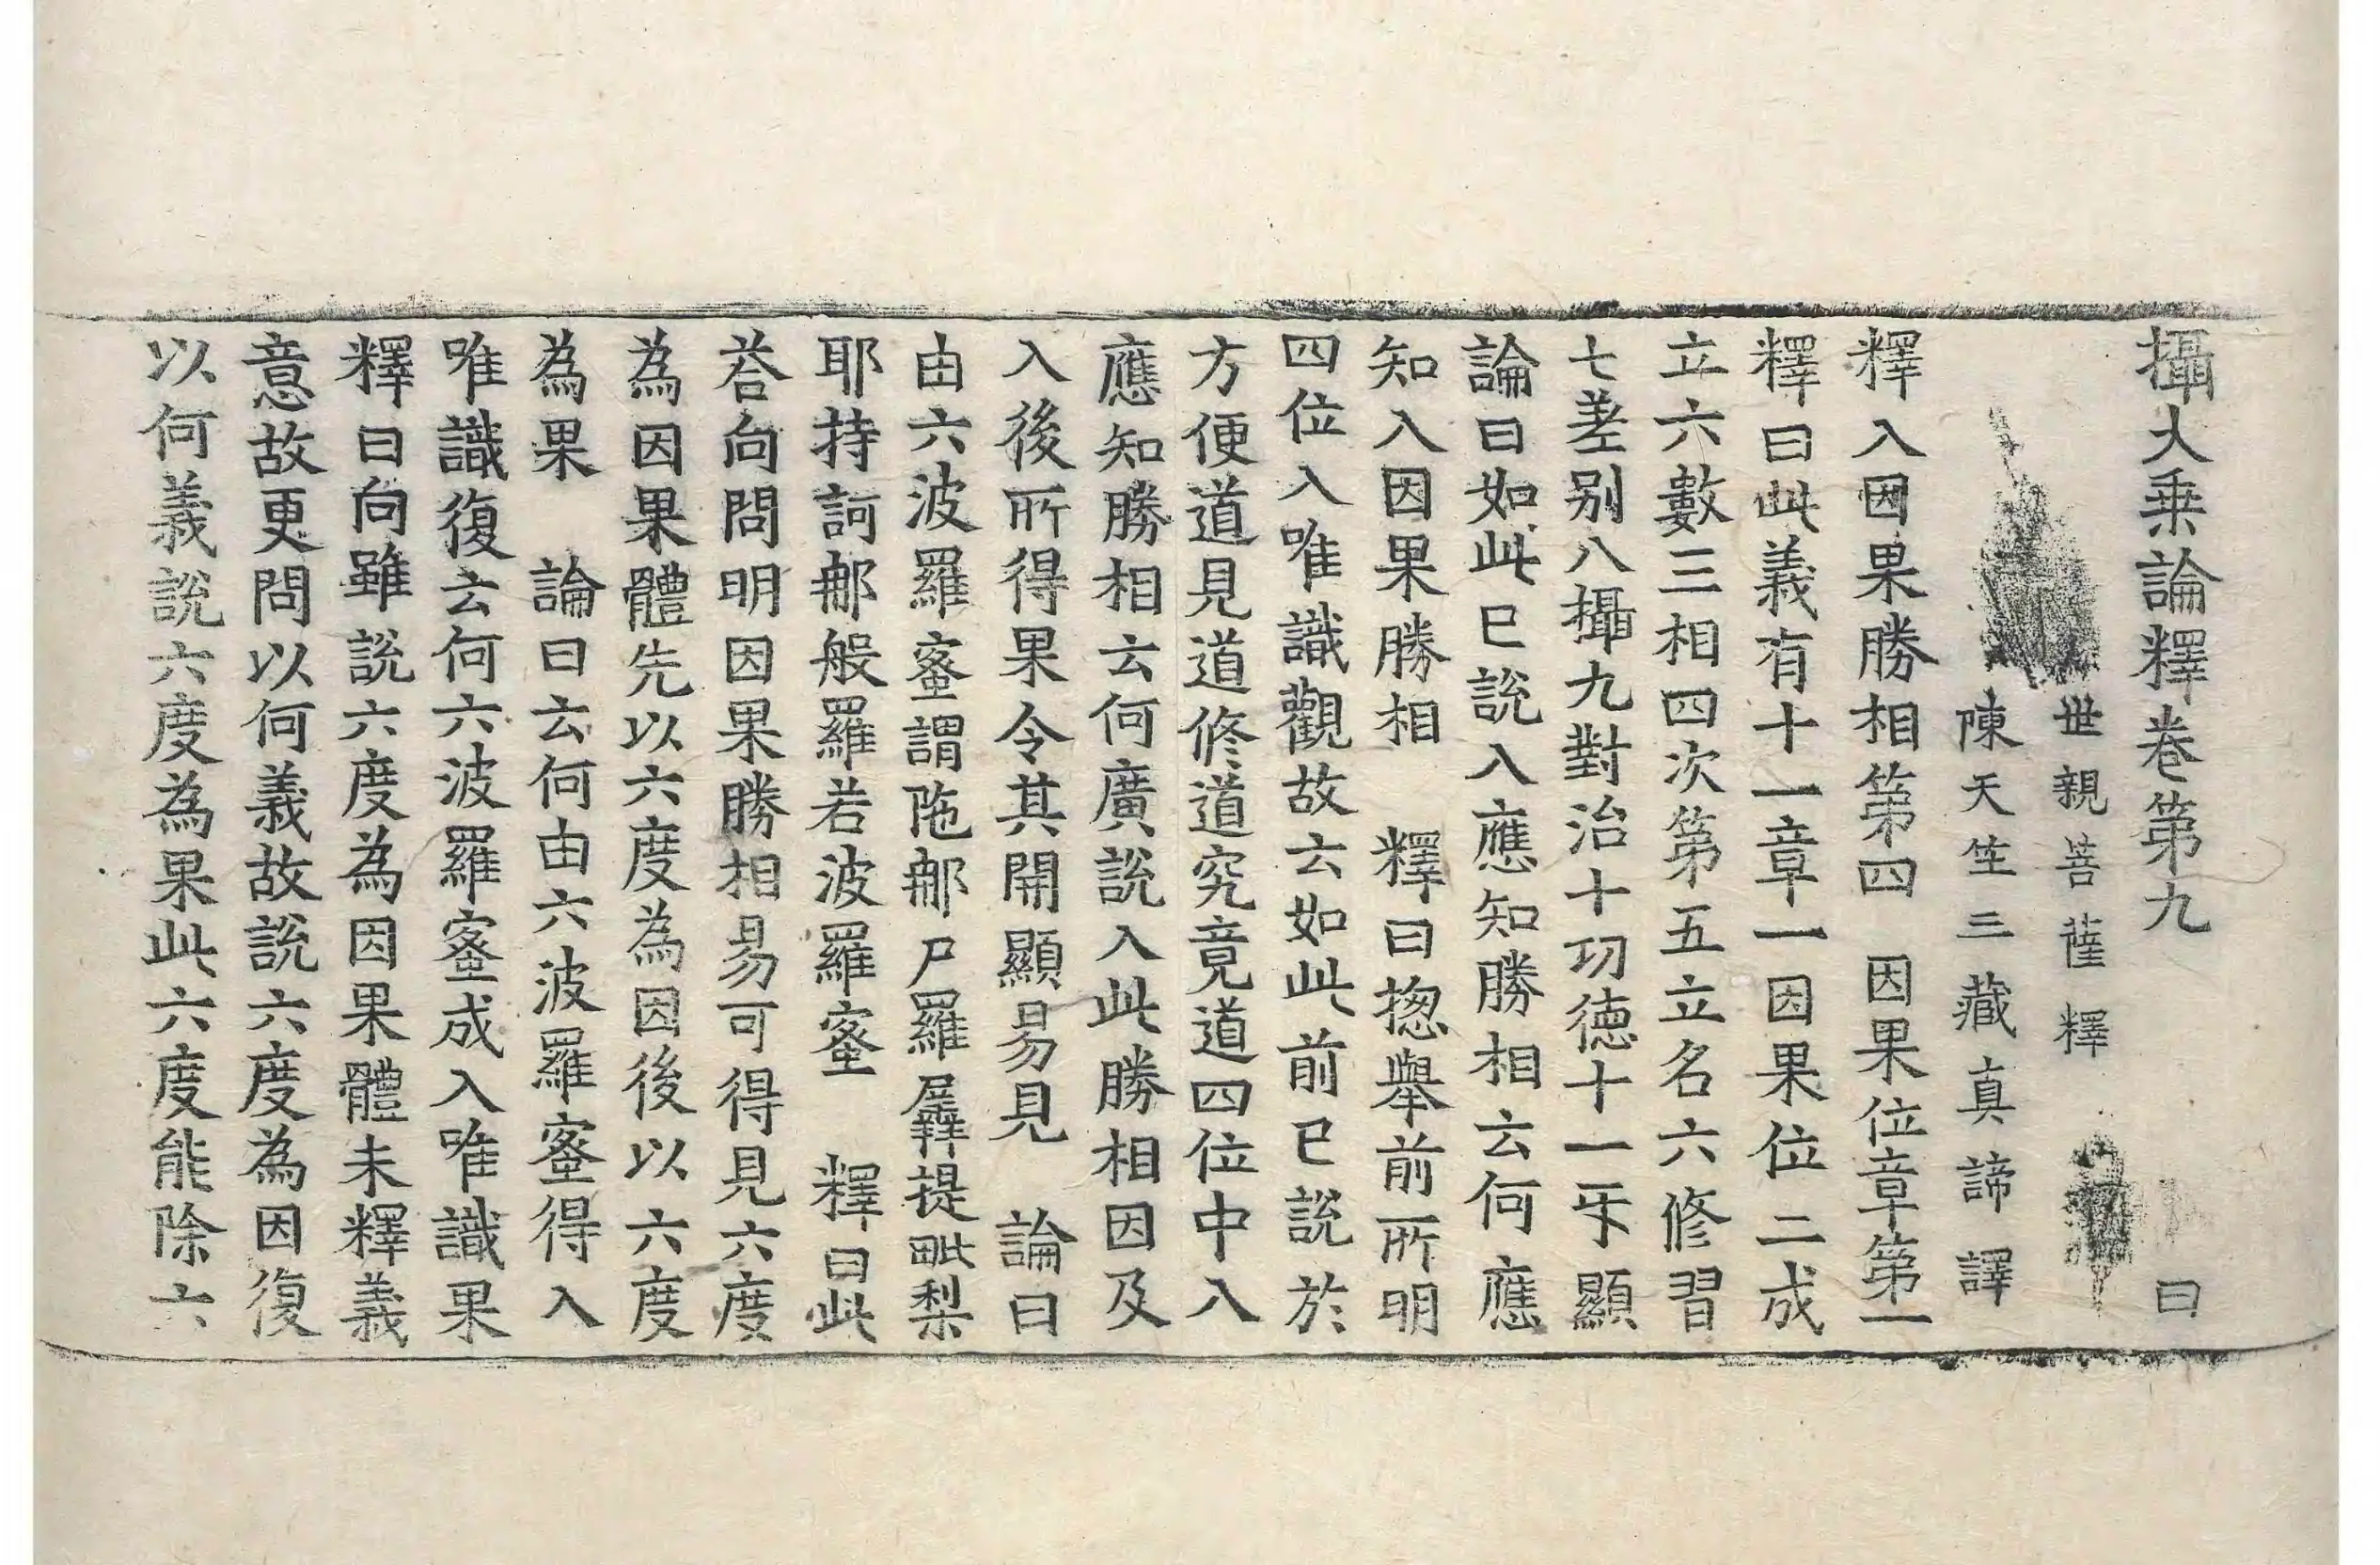 攝大乗論釋卷第九 曰
世親菩薩釋
陳天竺三藏真諦譯
釋入因果勝相第四 因果位章第一
釋曰此義有十一章一因果位二成
立六數三相四次第五立名六修習
七差别八攝九對治十㓛德十一㸦顯
論曰如此已說入應知勝相云何應
知入因果勝相 釋曰揔舉前所明
四位入唯識觀故云如此前已說於
方便道見道修道究竟道四位中入
應知勝相云何廣說入此勝相因及
入後所得果令其開顯易見 論曰
由六波羅蜜謂陁那尸羅羼提毗梨
耶持訶那般羅若波羅蜜 釋曰此
荅向問明因果勝相易可得見六度
為因果體先以六度為因後以六度
為果 論曰云何由六波羅蜜得入
唯識復云何六波羅蜜成入唯識果
釋曰向雖說六度為因果體未釋義
意故更問以何義故說六度為因復
以何義說六度為果此六度能除六